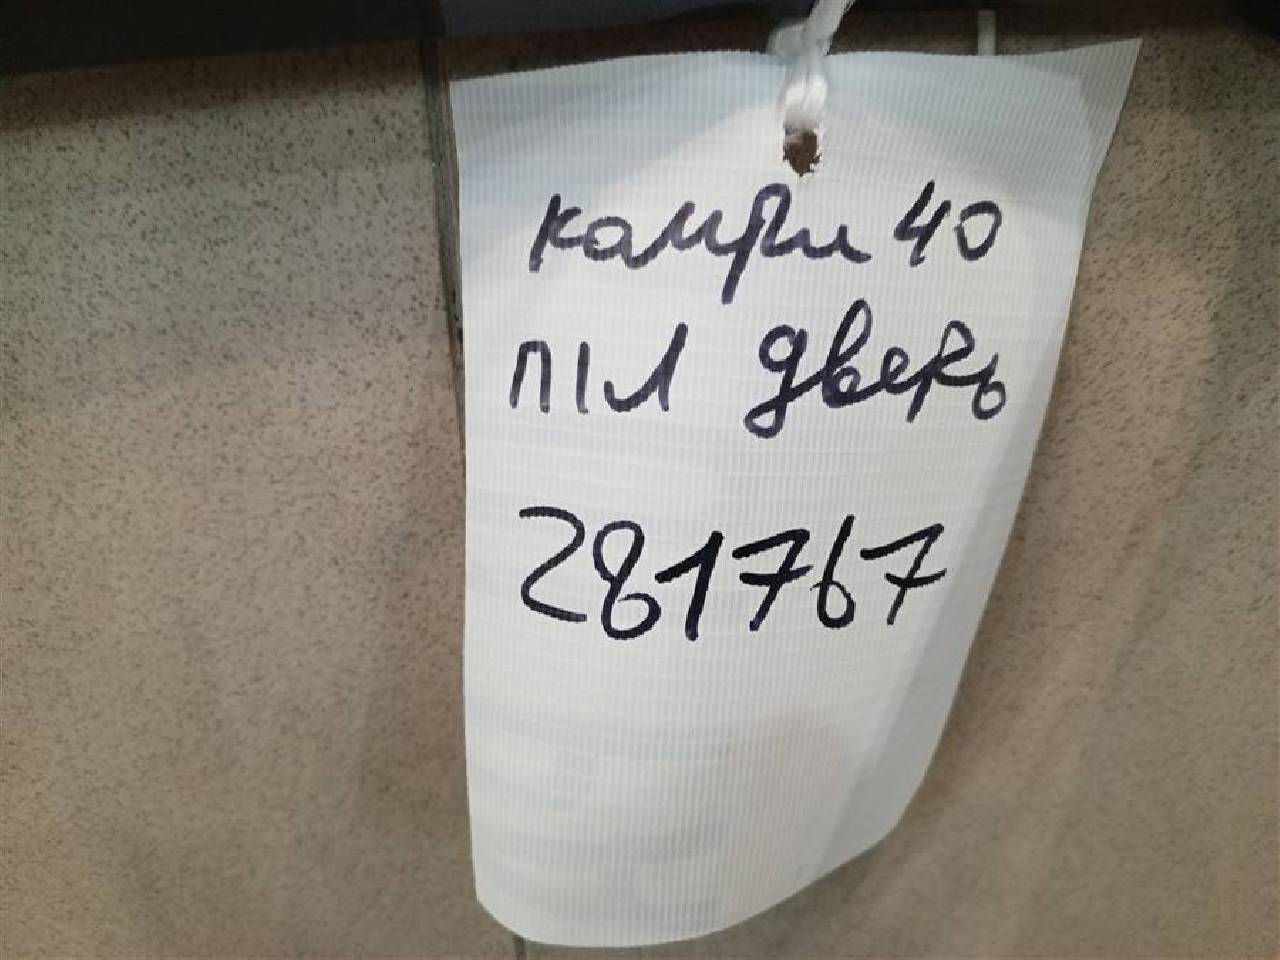 камри 40
п/л дверь
281767